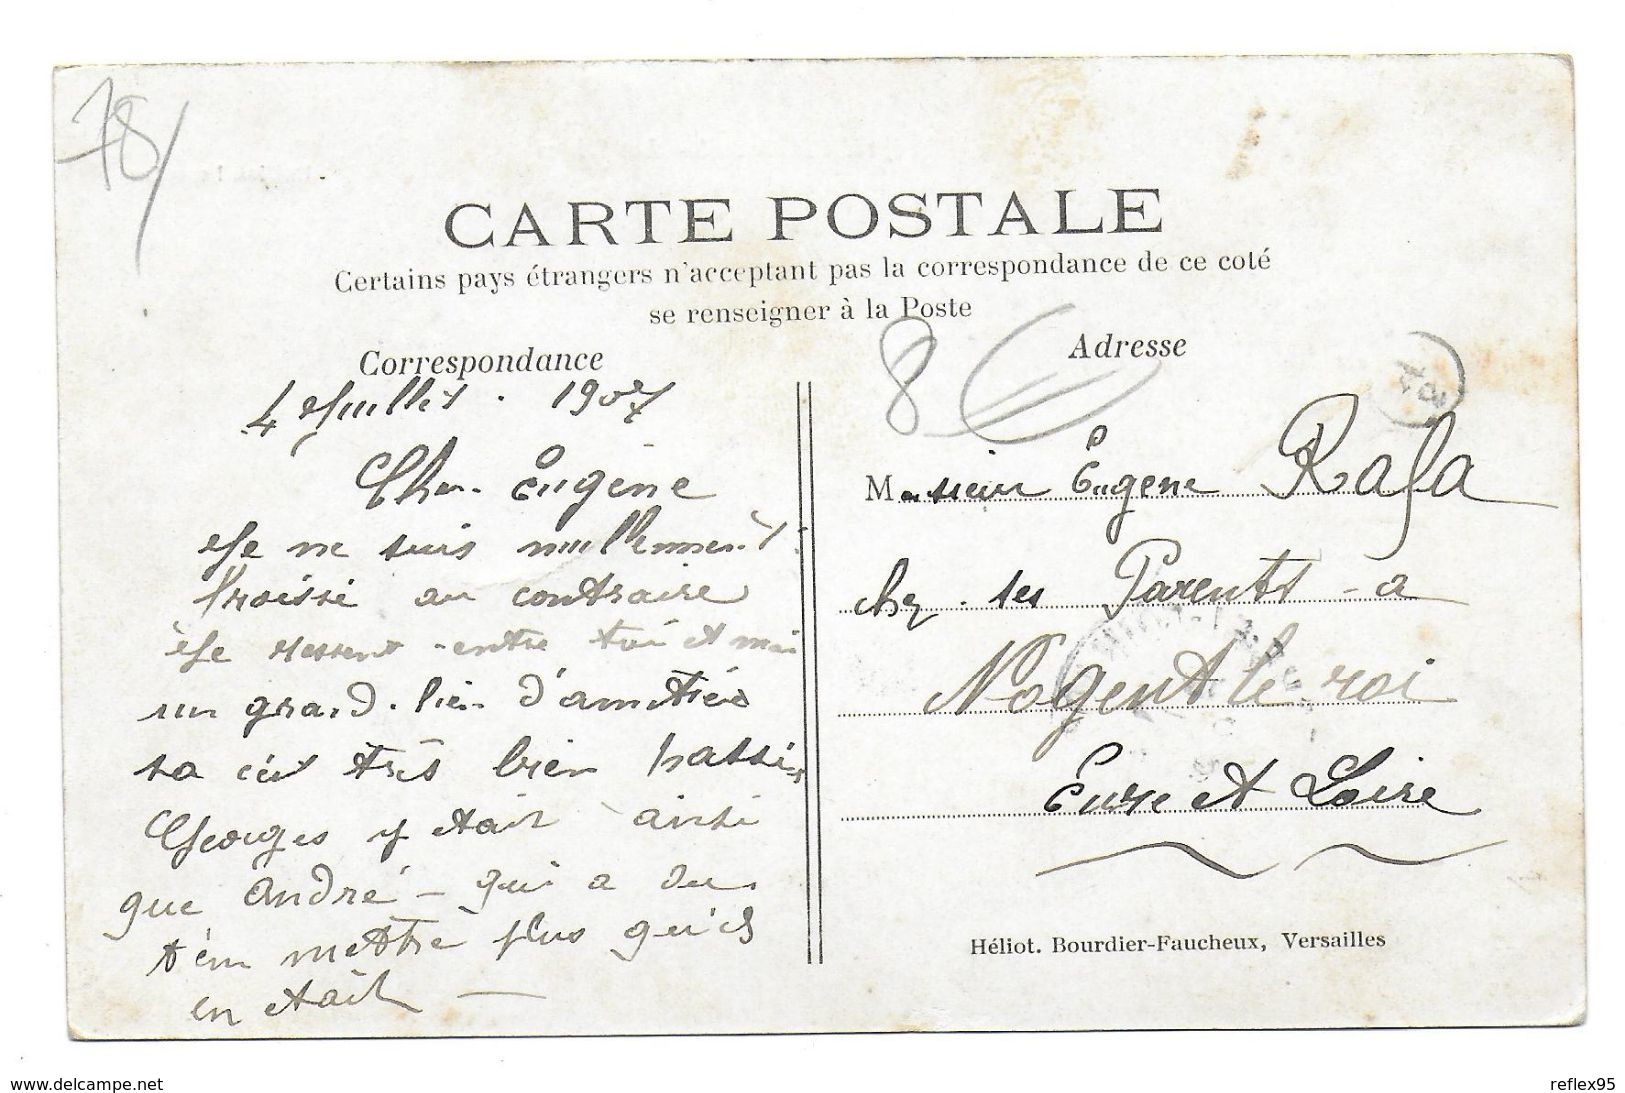 78/
CARTE POSTALE
Certains pays étrangers n'acceptant pas la correspondance de ce coté
se renseigner à la Poste
Correspondance
4 Juillet. 1907
Cher Eugène
Je ne suis nullement
froissé au contraire
Je ressent entre toi et moi
un grand lien d'amitiés
sa c'est très bien passé,
Georges y était ainsi
que André - qui a du
t'en mettre plus qu'ils
en était —
8
Adresse
Monsieur Eugene Rafa
chez ses Parents - a
Nogent le roi
Eure et Loire
Héliot. Bourdier-Faucheux, Versailles
www.delcampe.net
reflex95